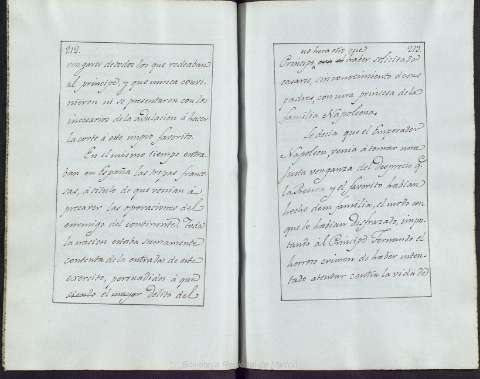 212.
vengarse de todos los que rodeaban
al principe y que nunca convi-
nieron ni se presentaron con los
incesarios de la adulacion á hacer
la corte á este iniquo favorito.
En el mismo tiempo entra-
ban en España las tropas france-
sas, á titulo de que venian á
precaver las operaciones del
enemigo del continente. Toda
la nacion estaba sumamente
contenta de la entrada de este
exercito, persuadidos á que
siendo el mayor delito del
213.
no hera otro que
Principe, haber solicitado
casarse, sin consentimiento de sus
padres, con una princesa de la
familia Napoleona.
Se decia que el Emperador
Napoleon, venia á tomar una
justa venganza del desprecio q.
la Reyna y el favorito habian
hecho de su familia, el modo con
que lo habian disfrazado, impu-
tando al Principe Fernando el
horroroso crimen de haber inten-
tado atentar contra la vida de
Biblioteca Regional de Madrid